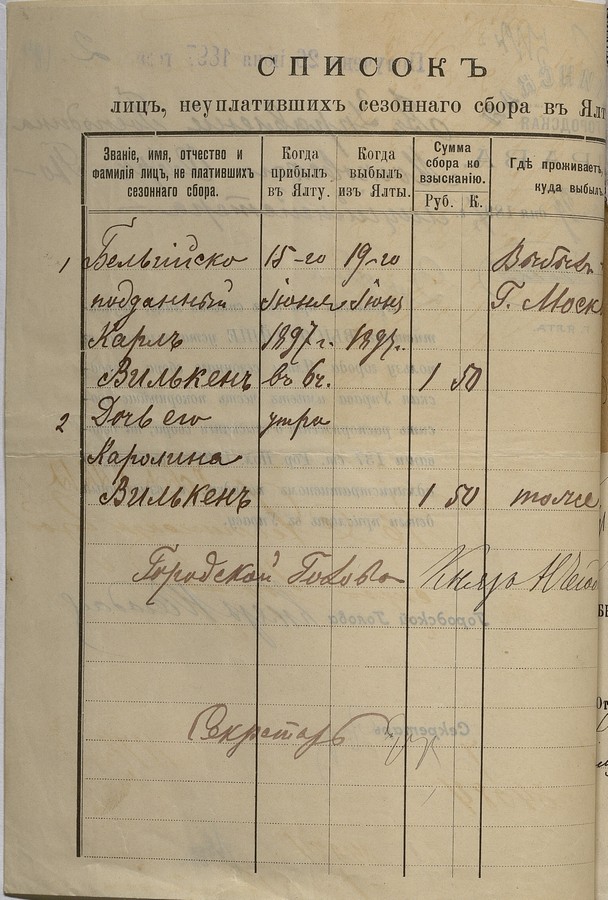 СПИСОКЪ
лицъ, неуплатившихъ сезоннаго сбора въ Ялт
Званіе, имя, отчество и фамилія лицъ, не платившихъ сезоннаго сбора.
Когда прибылъ въ Ялту.
Когда выбылъ изъ Ялты.
Сумма сбора ко взысканію.
Руб. К.
Гдѣ проживаетъ, куда выбылъ
1 Бельгійско 15-го 19-го Выбылъ
подданный Іюня Іюня Г. Моск
Карлъ 1897 г. 1897 г.
Вилькенъ въ 6 ч. 1 50
2 Дочь его утра
Каролина
Вилькенъ 1 50 тоже
Городской Голова Князь
Секретарь